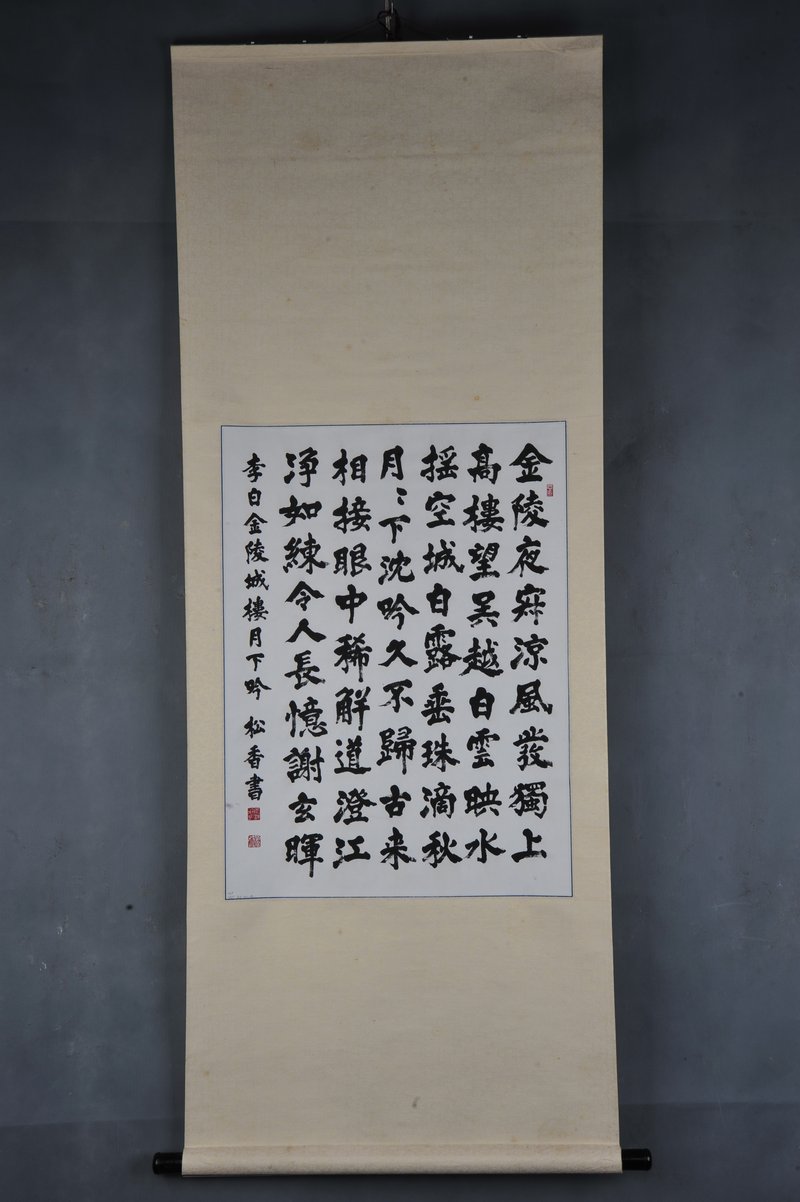 金陵夜寂涼風發獨上
高樓望吴越白雲映水
搖空城白露垂珠滴秋
月〻下沈吟久不歸古来
相接眼中稀解道澄江
淨如練令人長憶謝玄暉
李白金陵城樓月下吟 松香書